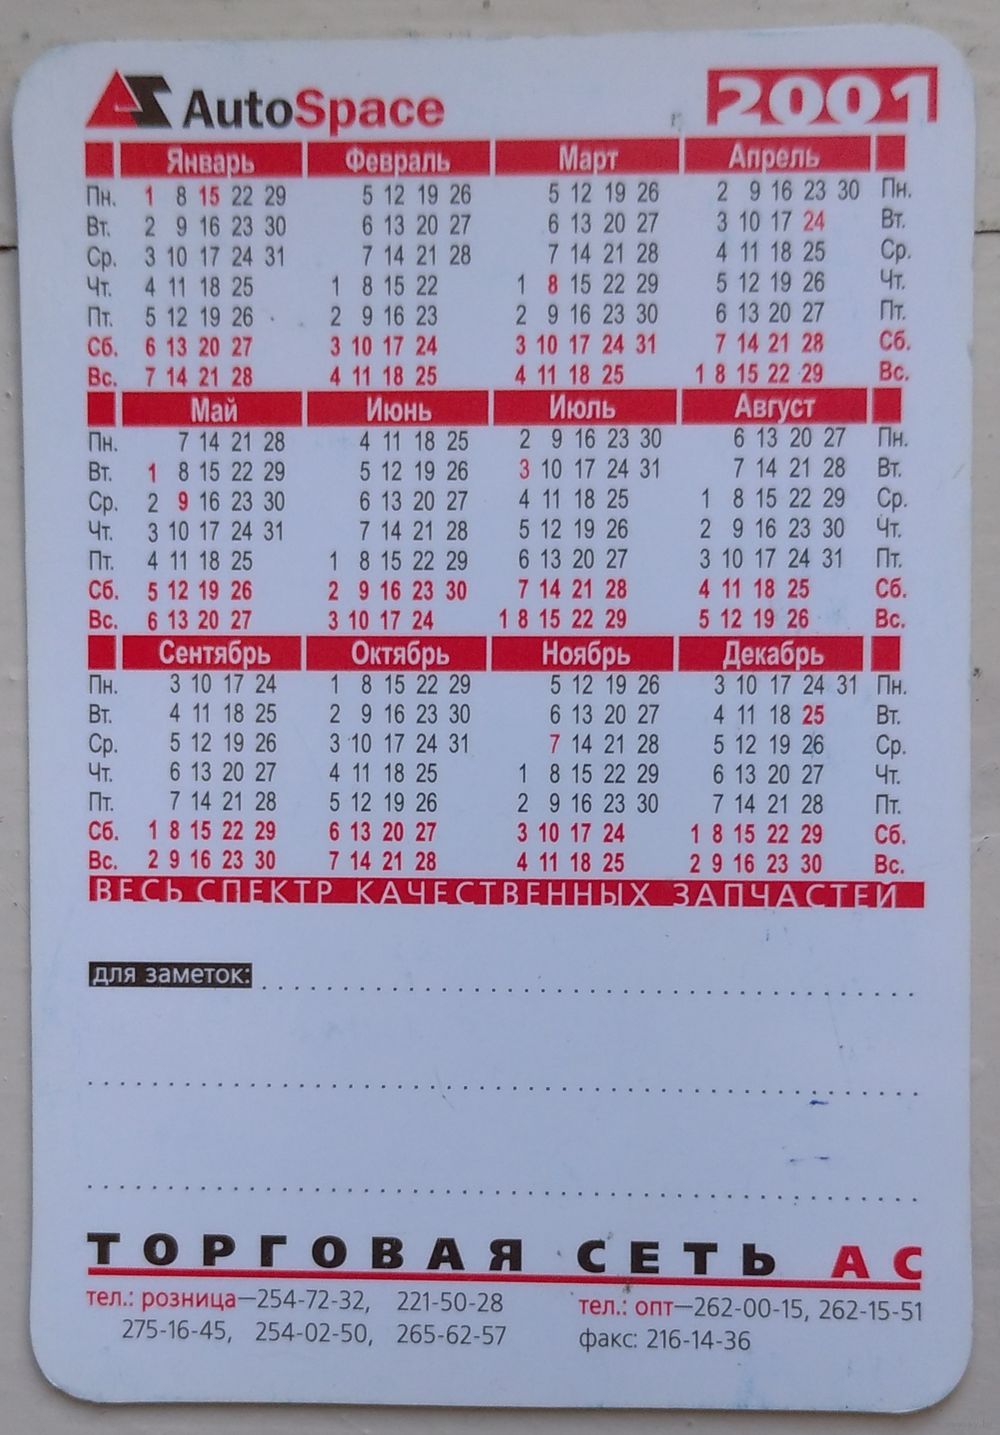 AutoSpace 2001
Январь Февраль Март Апрель
Пн. 1 8 15 22 29 5 12 19 26 5 12 19 26 2 9 16 23 30 Пн.
Вт. 2 9 16 23 30 6 13 20 27 6 13 20 27 3 10 17 24 Вт.
Ср. 3 10 17 24 31 7 14 21 28 7 14 21 28 4 11 18 25 Ср.
Чт. 4 11 18 25 1 8 15 22 1 8 15 22 29 5 12 19 26 Чт.
Пт. 5 12 19 26 2 9 16 23 2 9 16 23 30 6 13 20 27 Пт.
Сб. 6 13 20 27 3 10 17 24 3 10 17 24 31 7 14 21 28 Сб.
Вс. 7 14 21 28 4 11 18 25 4 11 18 25 1 8 15 22 29 Вс.
Май Июнь Июль Август
Пн. 7 14 21 28 4 11 18 25 2 9 16 23 30 6 13 20 27 Пн.
Вт. 1 8 15 22 29 5 12 19 26 3 10 17 24 31 7 14 21 28 Вт.
Ср. 2 9 16 23 30 6 13 20 27 4 11 18 25 1 8 15 22 29 Ср.
Чт. 3 10 17 24 31 7 14 21 28 5 12 19 26 2 9 16 23 30 Чт.
Пт. 4 11 18 25 1 8 15 22 29 6 13 20 27 3 10 17 24 31 Пт.
Сб. 5 12 19 26 2 9 16 23 30 7 14 21 28 4 11 18 25 Сб.
Вс. 6 13 20 27 3 10 17 24 1 8 15 22 29 5 12 19 26 Вс.
Сентябрь Октябрь Ноябрь Декабрь
Пн. 3 10 17 24 1 8 15 22 29 5 12 19 26 3 10 17 24 31 Пн.
Вт. 4 11 18 25 2 9 16 23 30 6 13 20 27 4 11 18 25 Вт.
Ср. 5 12 19 26 3 10 17 24 31 7 14 21 28 5 12 19 26 Ср.
Чт. 6 13 20 27 4 11 18 25 1 8 15 22 29 6 13 20 27 Чт.
Пт. 7 14 21 28 5 12 19 26 2 9 16 23 30 7 14 21 28 Пт.
Сб. 1 8 15 22 29 6 13 20 27 3 10 17 24 1 8 15 22 29 Сб.
Вс. 2 9 16 23 30 7 14 21 28 4 11 18 25 2 9 16 23 30 Вс.
ВЕСЬ СПЕКТР КАЧЕСТВЕННЫХ ЗАПЧАСТЕЙ
для заметок:
ТОРГОВАЯ СЕТЬ АС
тел.: розница—254-72-32, 221-50-28
275-16-45, 254-02-50, 265-62-57
тел.: опт—262-00-15, 262-15-51
факс: 216-14-36